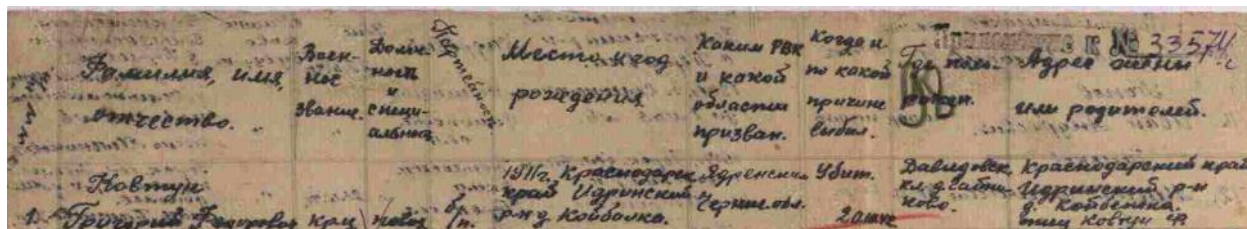 Приложение к № 33574с
Фамилия, имя, отчество.
Воен-
ное
звание.
Долж-
ность
и
специ-
альность
Партейность
Место и год
рождения
Каким РВК
и какой
области
призван.
Когда и
по какой
причине
выбыл.
Где похо-
ронен.
Адрес жены
или родителей.
1. Ковтун
Григорий Федорович
кр-ц
б/п.
1911г. Краснодарск.
край Идринский
р-н д. Койбалка.
Ядренским
Убит.
Давидовск.
Краснодарский край
Идринский р-н
отец Ковтун